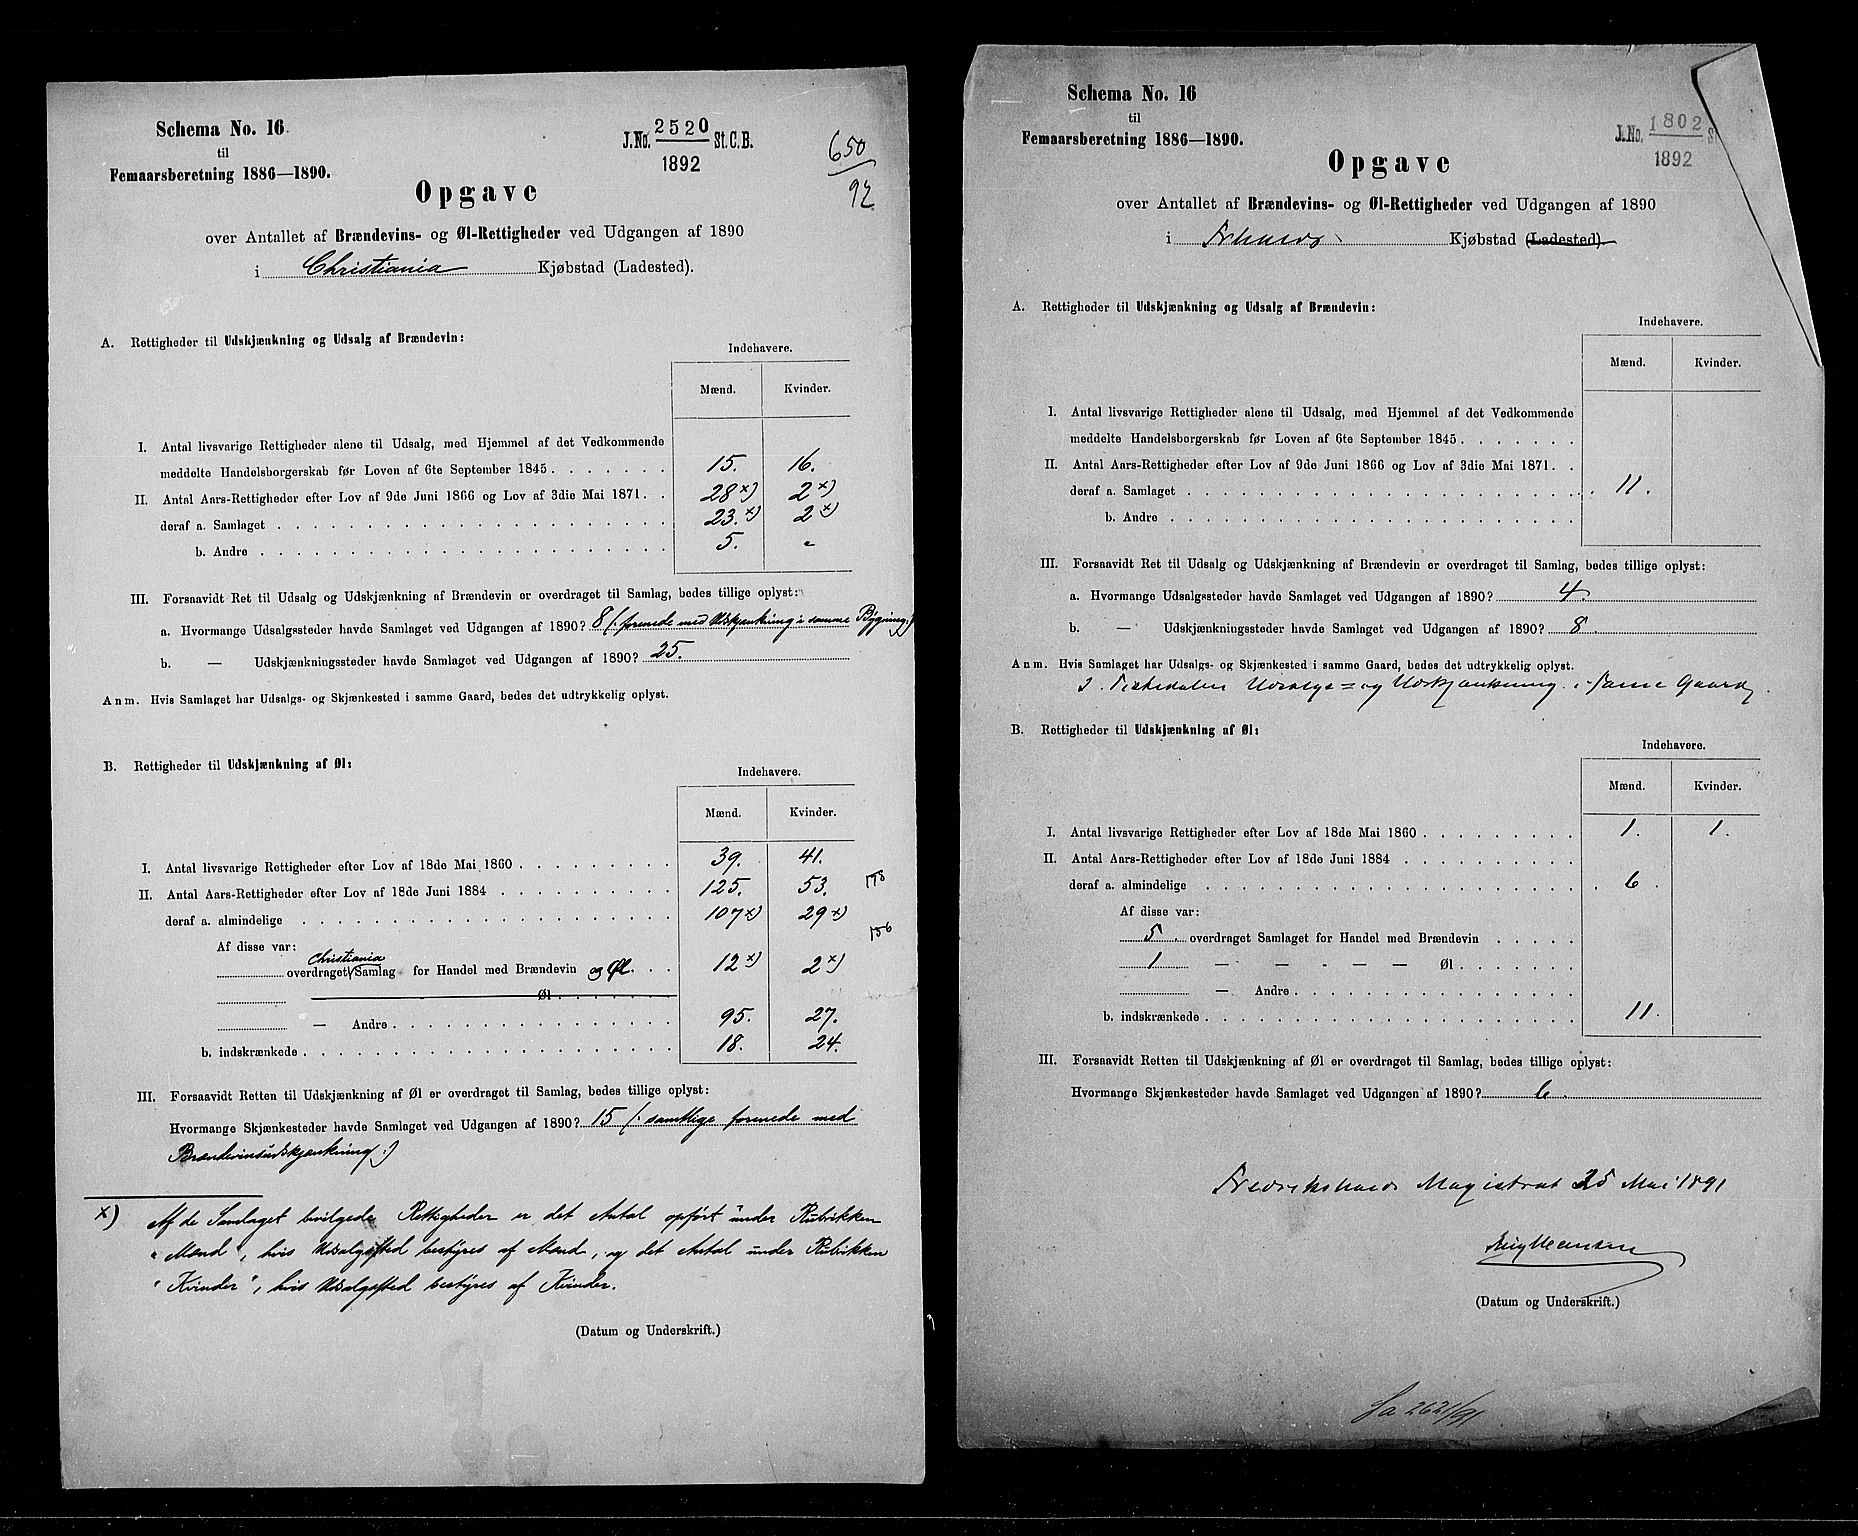 Schema No. 16
til
Femaarsberetning 1886—1890.
J.No. 2520 St.C.B.
1892
650
92
Opgave
over Antallet af Brændevins- og Øl-Rettigheder ved Udgangen af 1890
i Christiania Kjøbstad (Ladested).
A. Rettigheder til Udskjænkning og Udsalg af Brændevin:
Indehavere.
Mænd. Kvinder.
I. Antal livsvarige Rettigheder alene til Udsalg, med Hjemmel af det Vedkommende
meddelte Handelsborgerskab før Loven af 6te September 1845 . . . . . . . 15. 16.
II. Antal Aars-Rettigheder efter Lov af 9de Juni 1866 og Lov af 3die Mai 1871. . 28 x) 2 x)
deraf a. Samlaget . . . . . . . 23. x) 2 x)
b. Andre . . . . . . . 5. "
III. Forsaavidt Ret til Udsalg og Udskjænkning af Brændevin er overdraget til Samlag, bedes tillige oplyst:
a. Hvormange Udsalgssteder havde Samlaget ved Udgangen af 1890? 8 (: forenede med Udskjænkning i samme Bygning:)
b. — Udskjænkningssteder havde Samlaget ved Udgangen af 1890? 25.
Anm. Hvis Samlaget har Udsalgs- og Skjænkested i samme Gaard, bedes det udtrykkelig oplyst.
B. Rettigheder til Udskjænkning af Øl:
Indehavere.
Mænd. Kvinder.
I. Antal livsvarige Rettigheder efter Lov af 18de Mai 1860 . . . . . . . 39. 41.
II. Antal Aars-Rettigheder efter Lov af 18de Juni 1884 . . . . . . . 125. 53. 178
deraf a. almindelige . . . . . . . 107 x) 29 x)
Af disse var: 136
Christiania
overdraget Samlag for Handel med Brændevin og Øl. . . . 12 x) 2 x)
Øl . . . . . . .
— Andre . . . . . . . 95. 27.
b. indskrænkede . . . . . . . 18. 24.
III. Forsaavidt Retten til Udskjænkning af Øl er overdraget til Samlag, bedes tillige oplyst:
Hvormange Skjænkesteder havde Samlaget ved Udgangen af 1890? 15 (: samtlige forenede med
Brændevinsudskjænkning :)
x) Af de Samlaget bevilgede Rettigheder er det Antal opført under Rubrikken
"Mænd", hvis Udsalgssted bestyres af Mænd, og det Antal under Rubrikken
"Kvinder", hvis Udsalgssted bestyres af Kvinder.
(Datum og Underskrift.)
Schema No. 16
til
Femaarsberetning 1886—1890.
J.No. 1802 St
1892
Opgave
over Antallet af Brændevins- og Øl-Rettigheder ved Udgangen af 1890
i Frhald Kjøbstad (Ladested).
A. Rettigheder til Udskjænkning og Udsalg af Brændevin:
Indehavere.
Mænd. Kvinder.
I. Antal livsvarige Rettigheder alene til Udsalg, med Hjemmel af det Vedkommende
meddelte Handelsborgerskab før Loven af 6te September 1845 . . . . . . .
II. Antal Aars-Rettigheder efter Lov af 9de Juni 1866 og Lov af 3die Mai 1871. .
deraf a. Samlaget . . . . . . . 11.
b. Andre . . . . . . .
III. Forsaavidt Ret til Udsalg og Udskjænkning af Brændevin er overdraget til Samlag, bedes tillige oplyst:
a. Hvormange Udsalgssteder havde Samlaget ved Udgangen af 1890? 4.
b. — Udskjænkningssteder havde Samlaget ved Udgangen af 1890? 8
Anm. Hvis Samlaget har Udsalgs- og Skjænkested i samme Gaard, bedes det udtrykkelig oplyst.
Udsalgs= og Udskjænkning i samme Gaard.
B. Rettigheder til Udskjænkning af Øl:
Indehavere.
Mænd. Kvinder.
I. Antal livsvarige Rettigheder efter Lov af 18de Mai 1860 . . . . . . . 1. 1.
II. Antal Aars-Rettigheder efter Lov af 18de Juni 1884 . . . . . . .
deraf a. almindelige . . . . . . . 6.
Af disse var:
5. overdraget Samlaget for Handel med Brændevin . . . . .
1 — - - — Øl . . . . . . .
— Andre . . . . . . .
b. indskrænkede . . . . . . . 11.
III. Forsaavidt Retten til Udskjænkning af Øl er overdraget til Samlag, bedes tillige oplyst:
Hvormange Skjænkesteder havde Samlaget ved Udgangen af 1890? 6.
Fredrikshalds Magistrat 25 Mai 1891
(Datum og Underskrift.)
Ja 2621/91